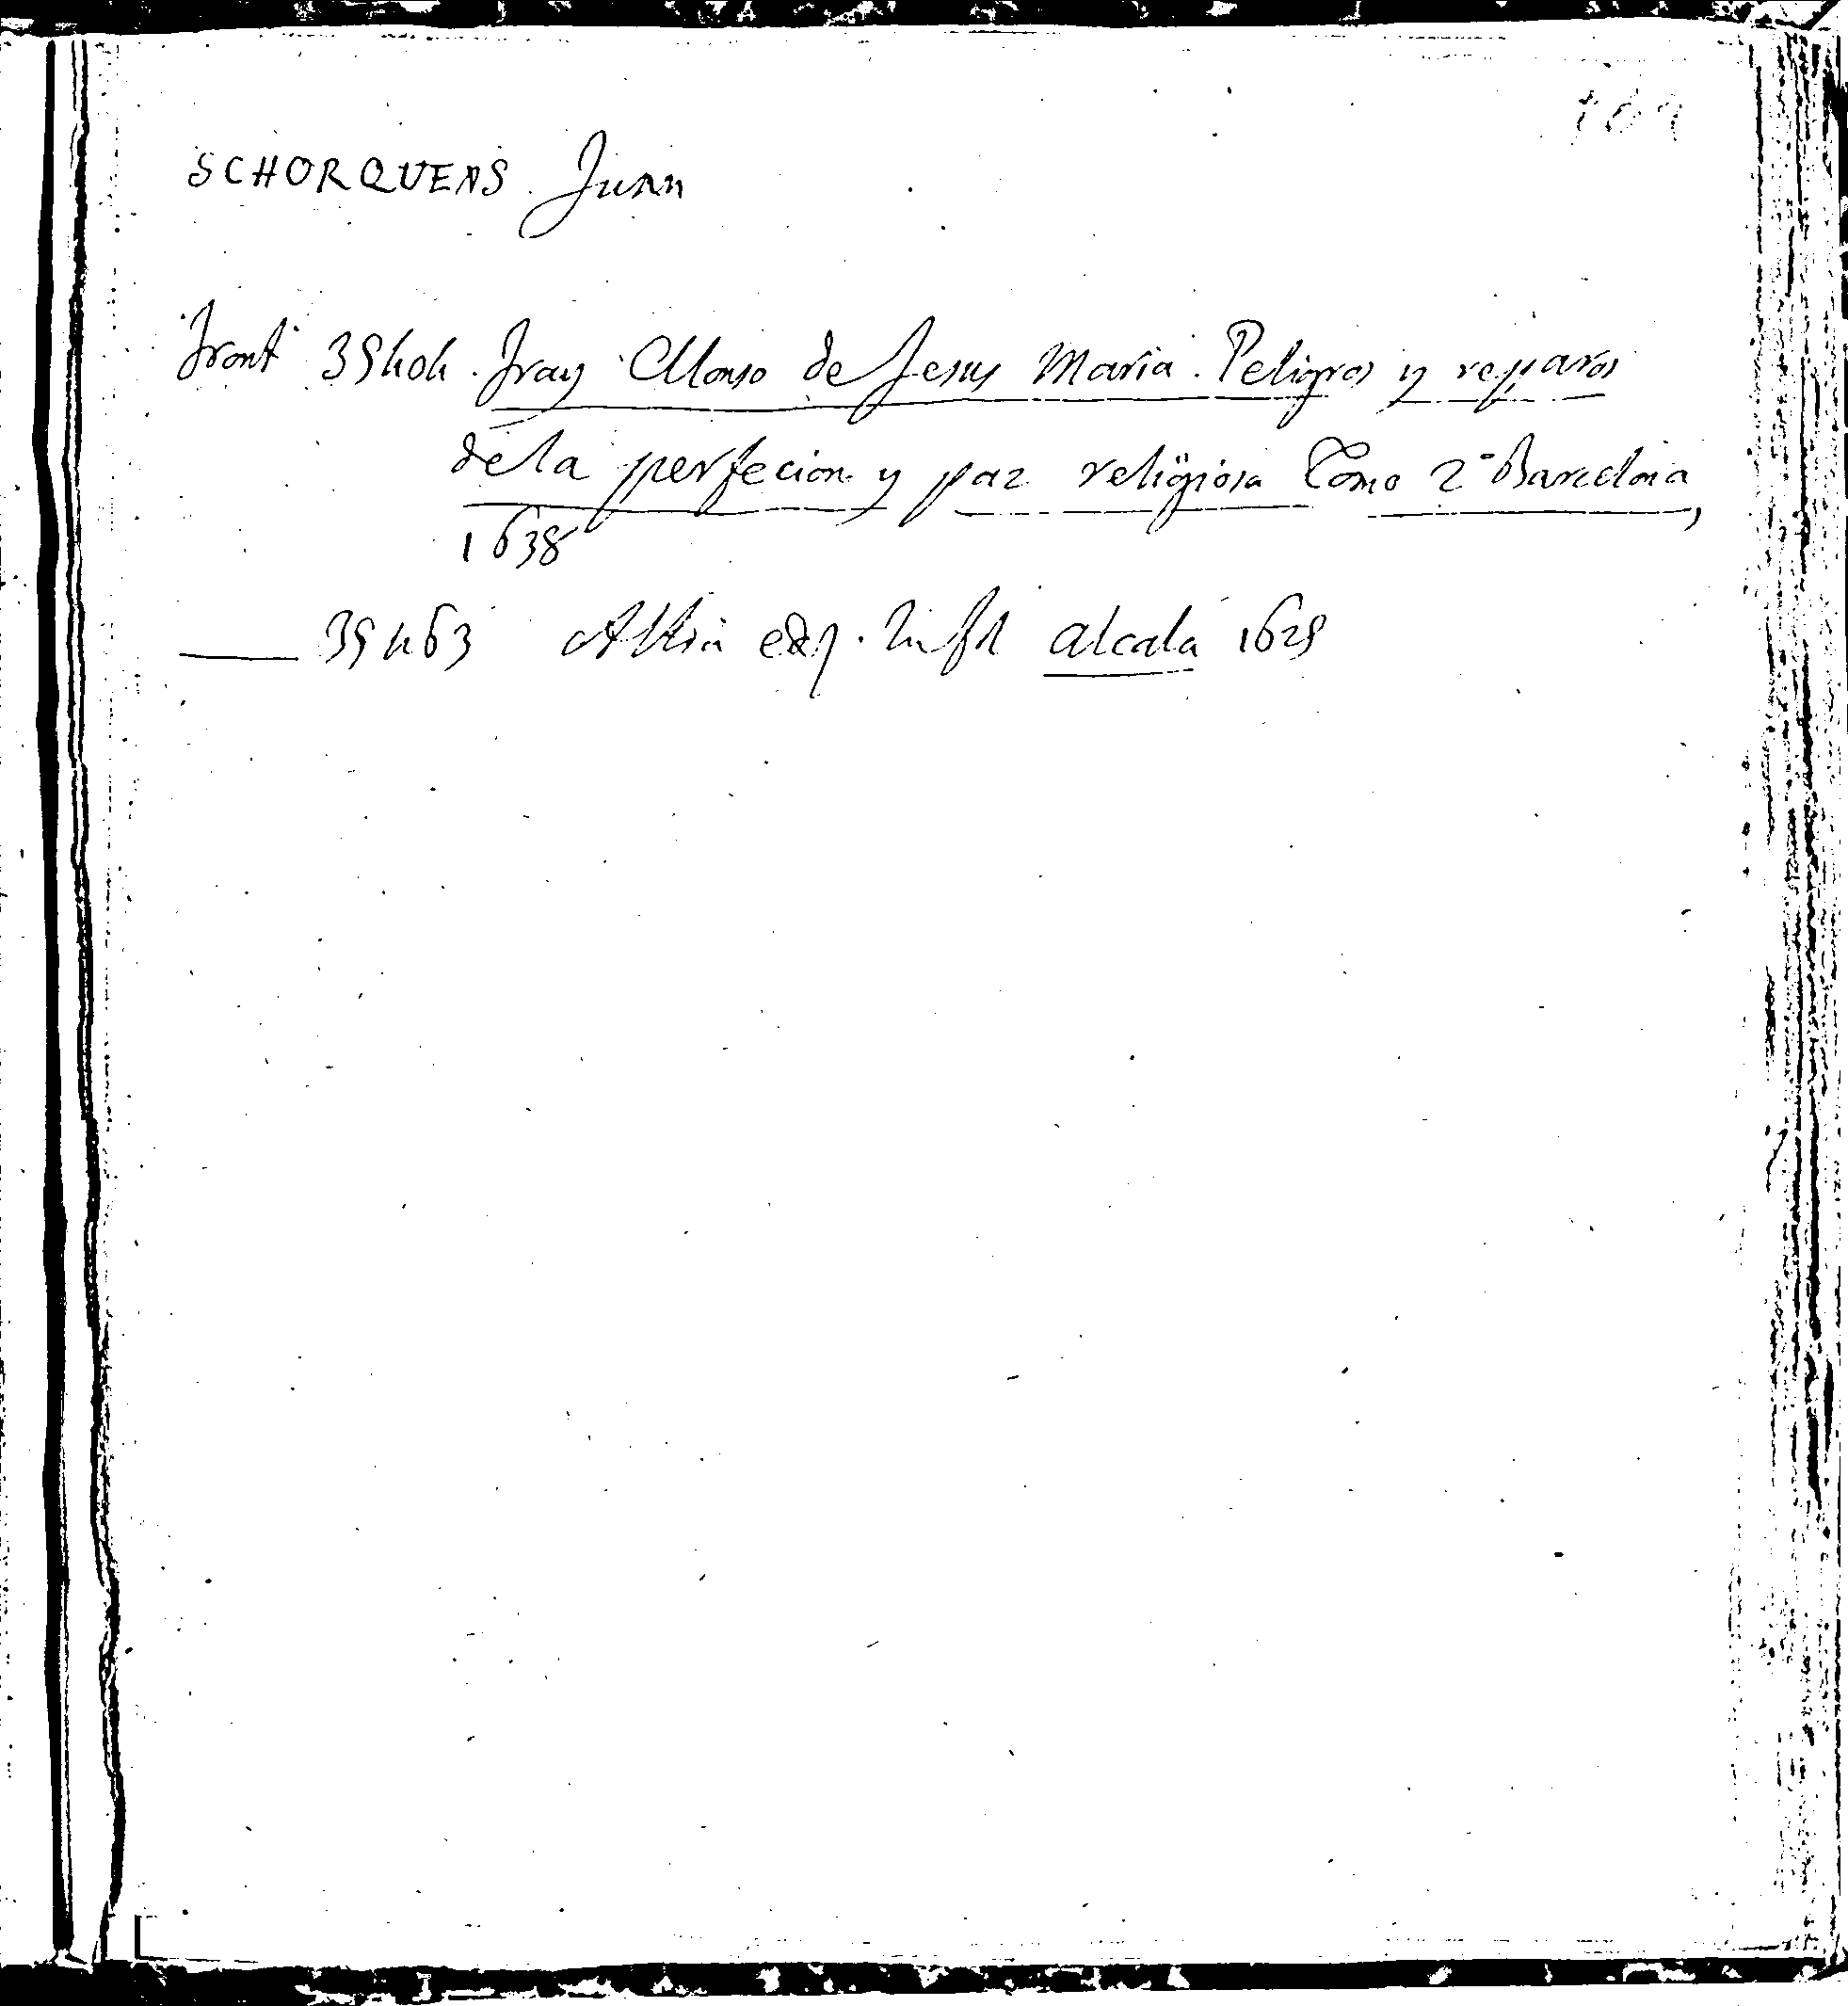 709
SCHORQUENS Juan
Front 39404. Fray Alonso de Jesus Maria. Peligros y reparos
de la perfecion y paz religiosa Tomo 2º Barcelona,
1638
39463 Alcala 1629